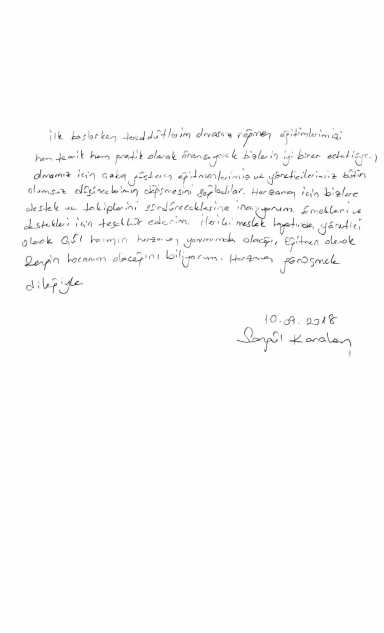 İlk başlarken tereddütlerim olmasına rağmen eğitimlerimizi
hem teorik hem pratik olarak bizlerin iyi birer
olmamız için çaba gösteren eğitmenlerimiz ve yöneticilerimiz bütün
olumsuz düşüncelerimin değişmesini sağladılar. Her zaman için bizlere
destek ve takiplerini sürdüreceklerine inanıyorum. Emekleri ve
destekleri için teşekkür ederim. İlerki meslek hayatımda yönetici
olarak hocamın her zaman yanımda olacağını, Eğitmen olarak
hocamın olacağını biliyorum. Her zaman görüşmek
dileğiyle
10.09.2018
Songül Karalan